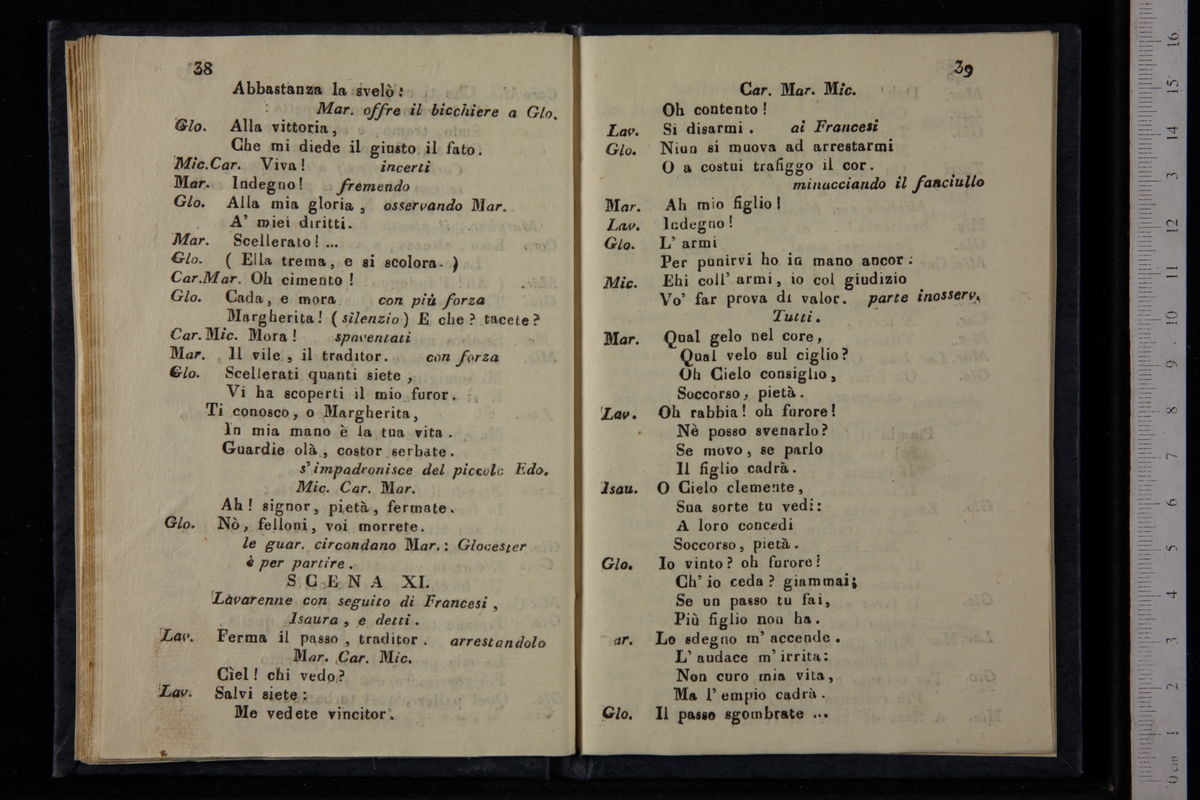 38
Abbastanza la svelò:
Mar. offre il bicchiere a Glo.
Glo. Alla vittoria,
Che mi diede il giusto il fato.
Mic.Car. Viva! incerti
Mar. Indegno! fremendo
Glo. Alla mia gloria, osservando Mar.
A' miei diritti.
Mar. Scellerato! ...
Glo. ( Ella trema, e si scolora. )
Car.Mar. Oh cimento!
Glo. Cada, e mora con più forza
Margherita! (silenzio) E che? tacete?
Car.Mic. Mora! spaventati
Mar. Il vile, il traditor. con forza
Glo. Scellerati quanti siete,
Vi ha scoperti il mio furor.
Ti conosco, o Margherita,
In mia mano è la tua vita.
Guardie olà, costor serbate.
s'impadronisce del piccolo Edo.
Mic. Car. Mar.
Ah! signor, pietà, fermate.
Glo. Nò, felloni, voi morrete.
le guar. circondano Mar.: Glocester
è per partire.
SCENA XI.
Lavarenne con seguito di Francesi,
Isaura, e detti.
Lav. Ferma il passo, traditor. arrestandolo
Mar. Car. Mic.
Ciel! chi vedo?
Lav. Salvi siete:
Me vedete vincitor.
39
Car. Mar. Mic.
Oh contento!
Lav. Si disarmi. ai Francesi
Glo. Niun si muova ad arrestarmi
O a costui trafiggo il cor.
minacciando il fanciullo
Mar. Ah mio figlio!
Lav. Indegno!
Glo. L' armi
Per punirvi ho in mano ancor:
Mic. Ehi coll' armi, io col giudizio
Vo' far prova di valor. parte inosserv.
Tutti.
Mar. Qual gelo nel core,
Qual velo sul ciglio?
Oh Cielo consiglio,
Soccorso, pietà.
Lav. Oh rabbia! oh furore!
Nè posso svenarlo?
Se movo, se parlo
Il figlio cadrà.
Isau. O Cielo clemente,
Sua sorte tu vedi:
A loro concedi
Soccorso, pietà.
Glo. Io vinto? oh furore!
Ch' io ceda? giammai;
Se un passo tu fai,
Più figlio non ha.
ar. Lo sdegno m' accende.
L' audace m' irrita:
Non curo mia vita,
Ma l' empio cadrà.
Glo. Il passo sgombrate ...
0 cm 1 2 3 4 5 6 7 8 9 10 11 12 13 14 15 16